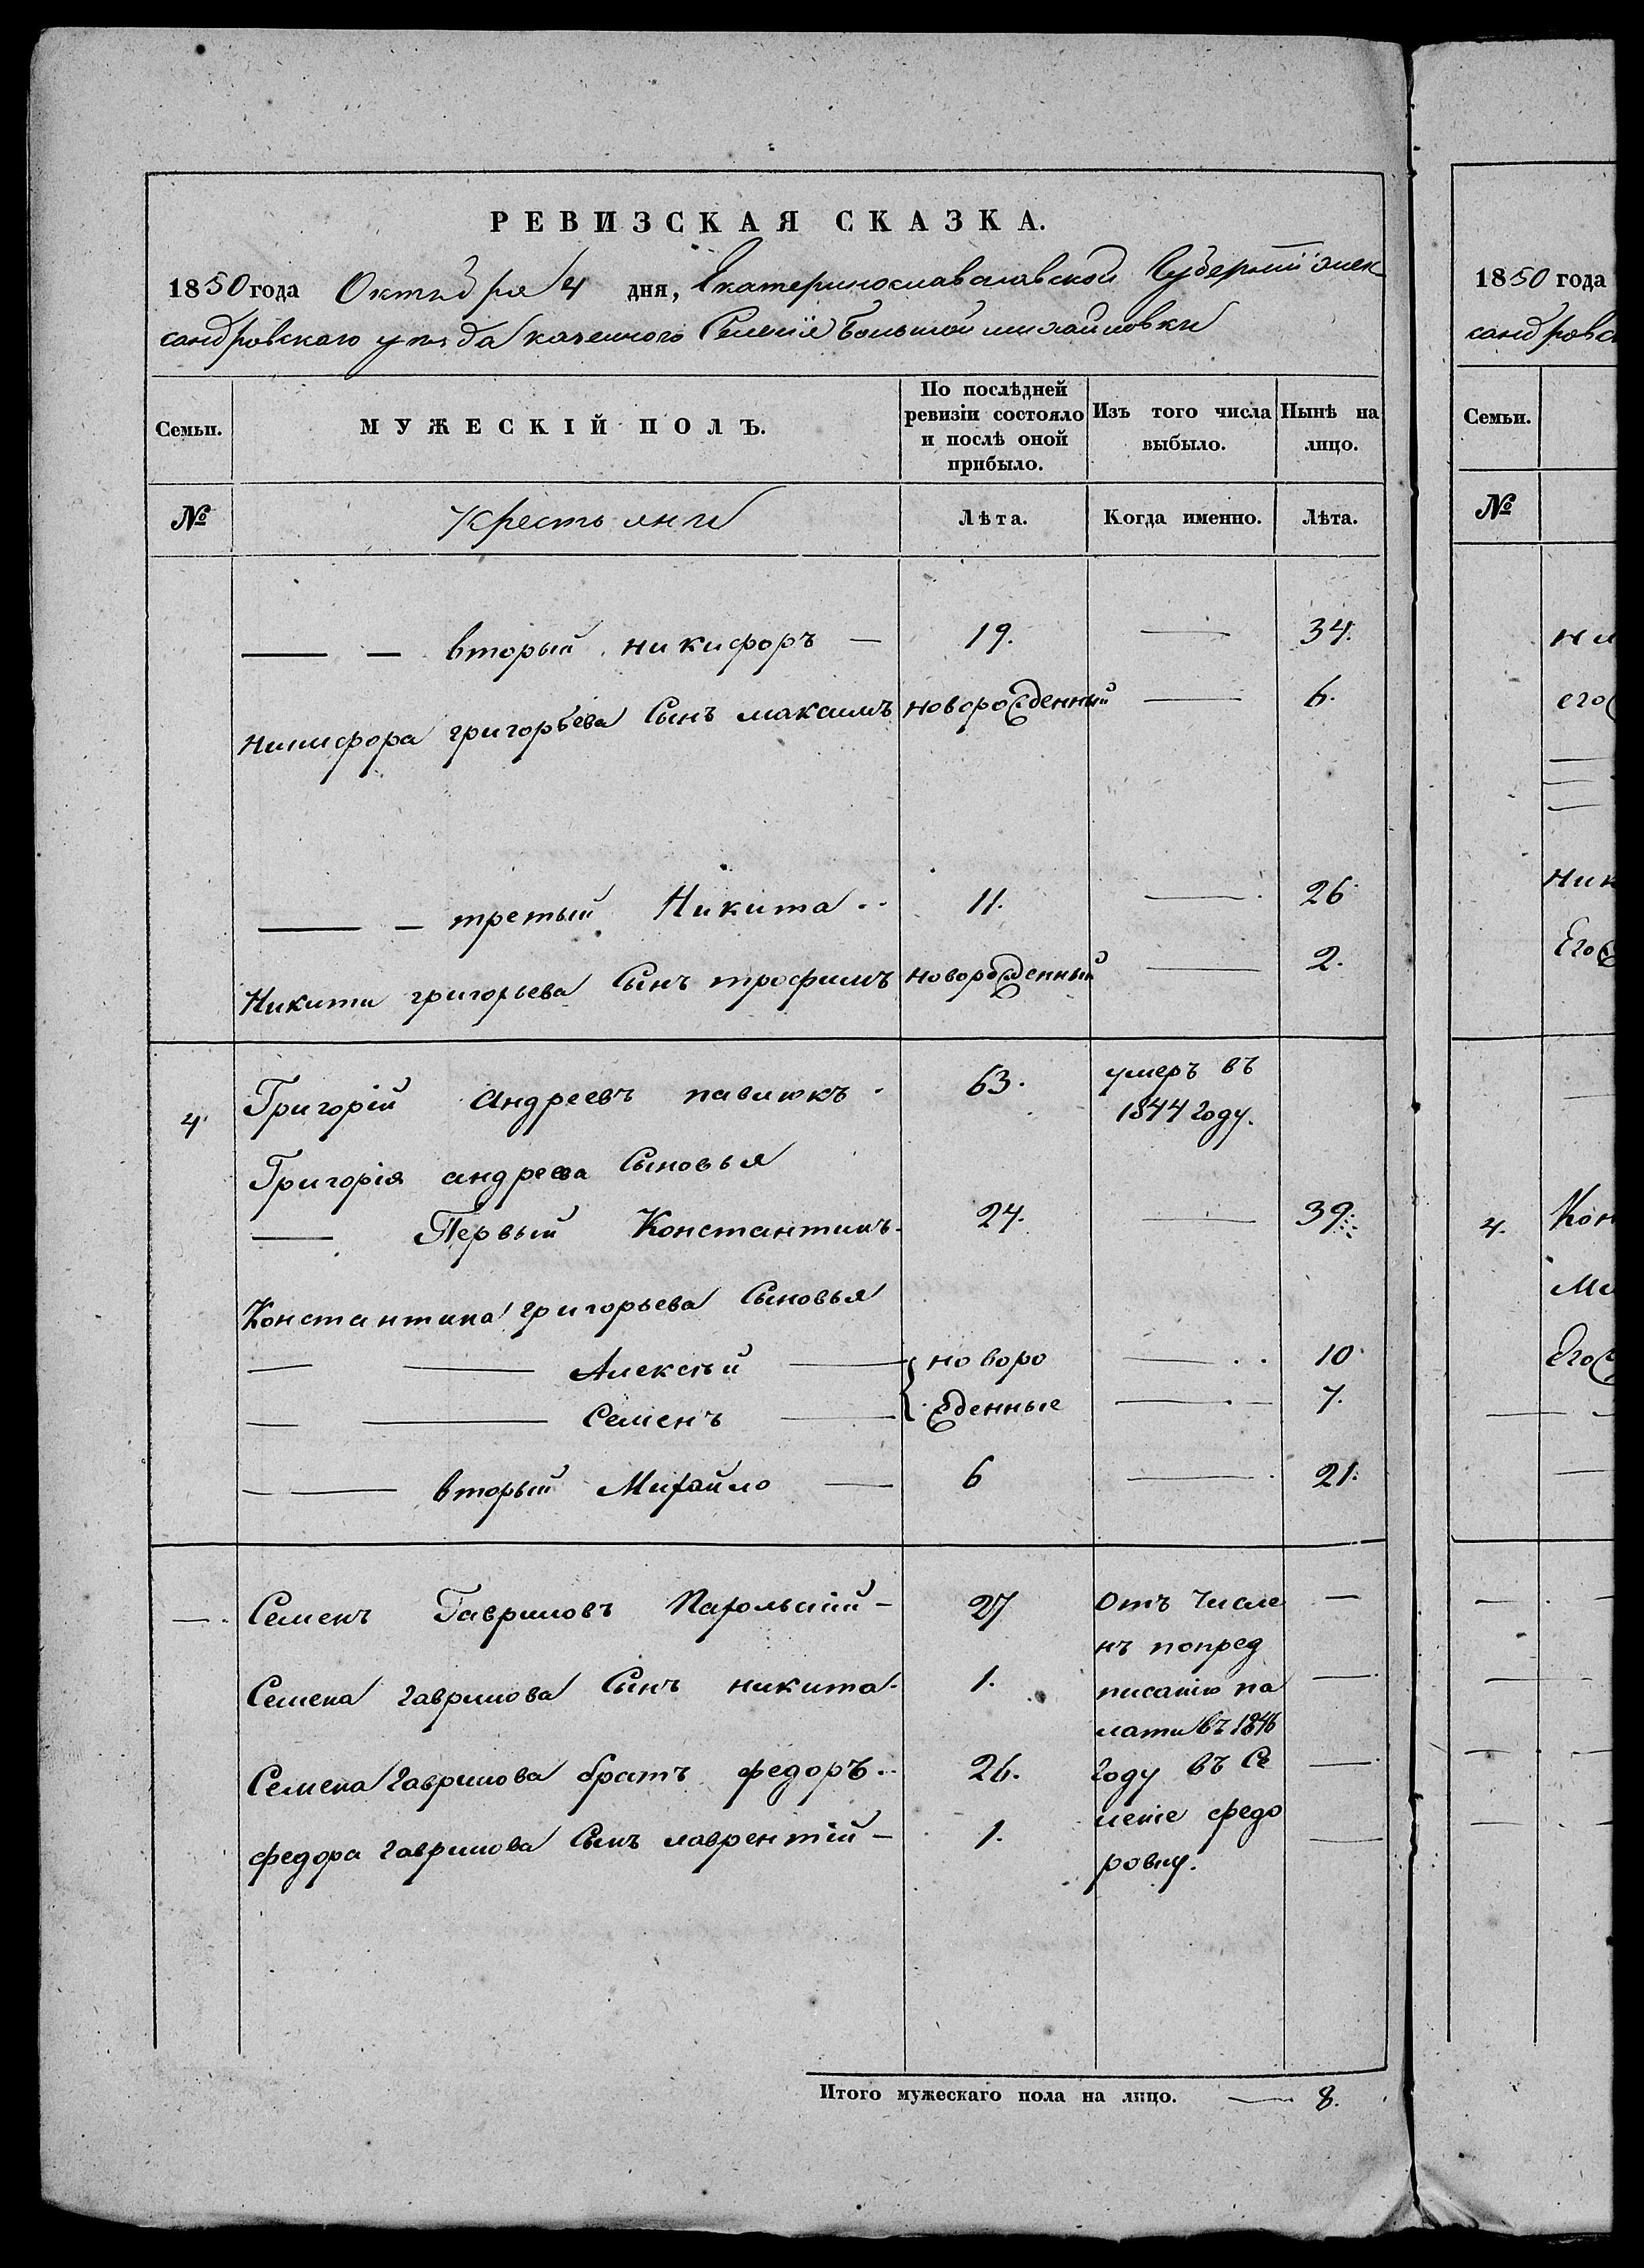 РЕВИЗСКАЯ СКАЗКА.
1850 года Октября 4 дня, Екатеринославславской Губернии алек
сандровскаго уѣзда казенного Селенія Большой михайловки
Семьи.
МУЖЕСКІЙ ПОЛЪ.
По послѣдней ревизіи состояло и послѣ оной прибыло.
Изъ того числа выбыло.
Нынѣ на лицо.
№ Крестьяни Лѣта. Когда именно. Лѣта.
— — вторый никифоръ — 19. — 34.
никифора григорьева Сынъ максимъ новорожденный — 6.
— — третый Никита 11. — 26
Никиты григорьева Сынъ трофимъ новорожденный — 2.
4. Григорій андреевъ павлюкъ 63. умеръ въ
1844 году.
Григорія андреева Сыновья
— Первый Константинъ 24. — 39
Константина григорьева Сыновья
— — Алексѣй — новоро — 10
— — Семенъ — жденные — 7.
— — вторый Михайло — 6 — 21.
— Семенъ Гавриловъ — 27 отъ числе —
нъ попред
Семена гаврилова Сынъ никита 1. писанію па —
латы въ 1846
Семена гаврилова братъ федоръ 26. году въ Се —
федора гаврилова Сынъ лаврентій — 1. леніе федо —
ровку.
Итого мужескаго пола на лицо. — 8.
1850 года
сандровс
Семьи.
№
ни
его
Ник
Его
4. Кон
Ми
Его